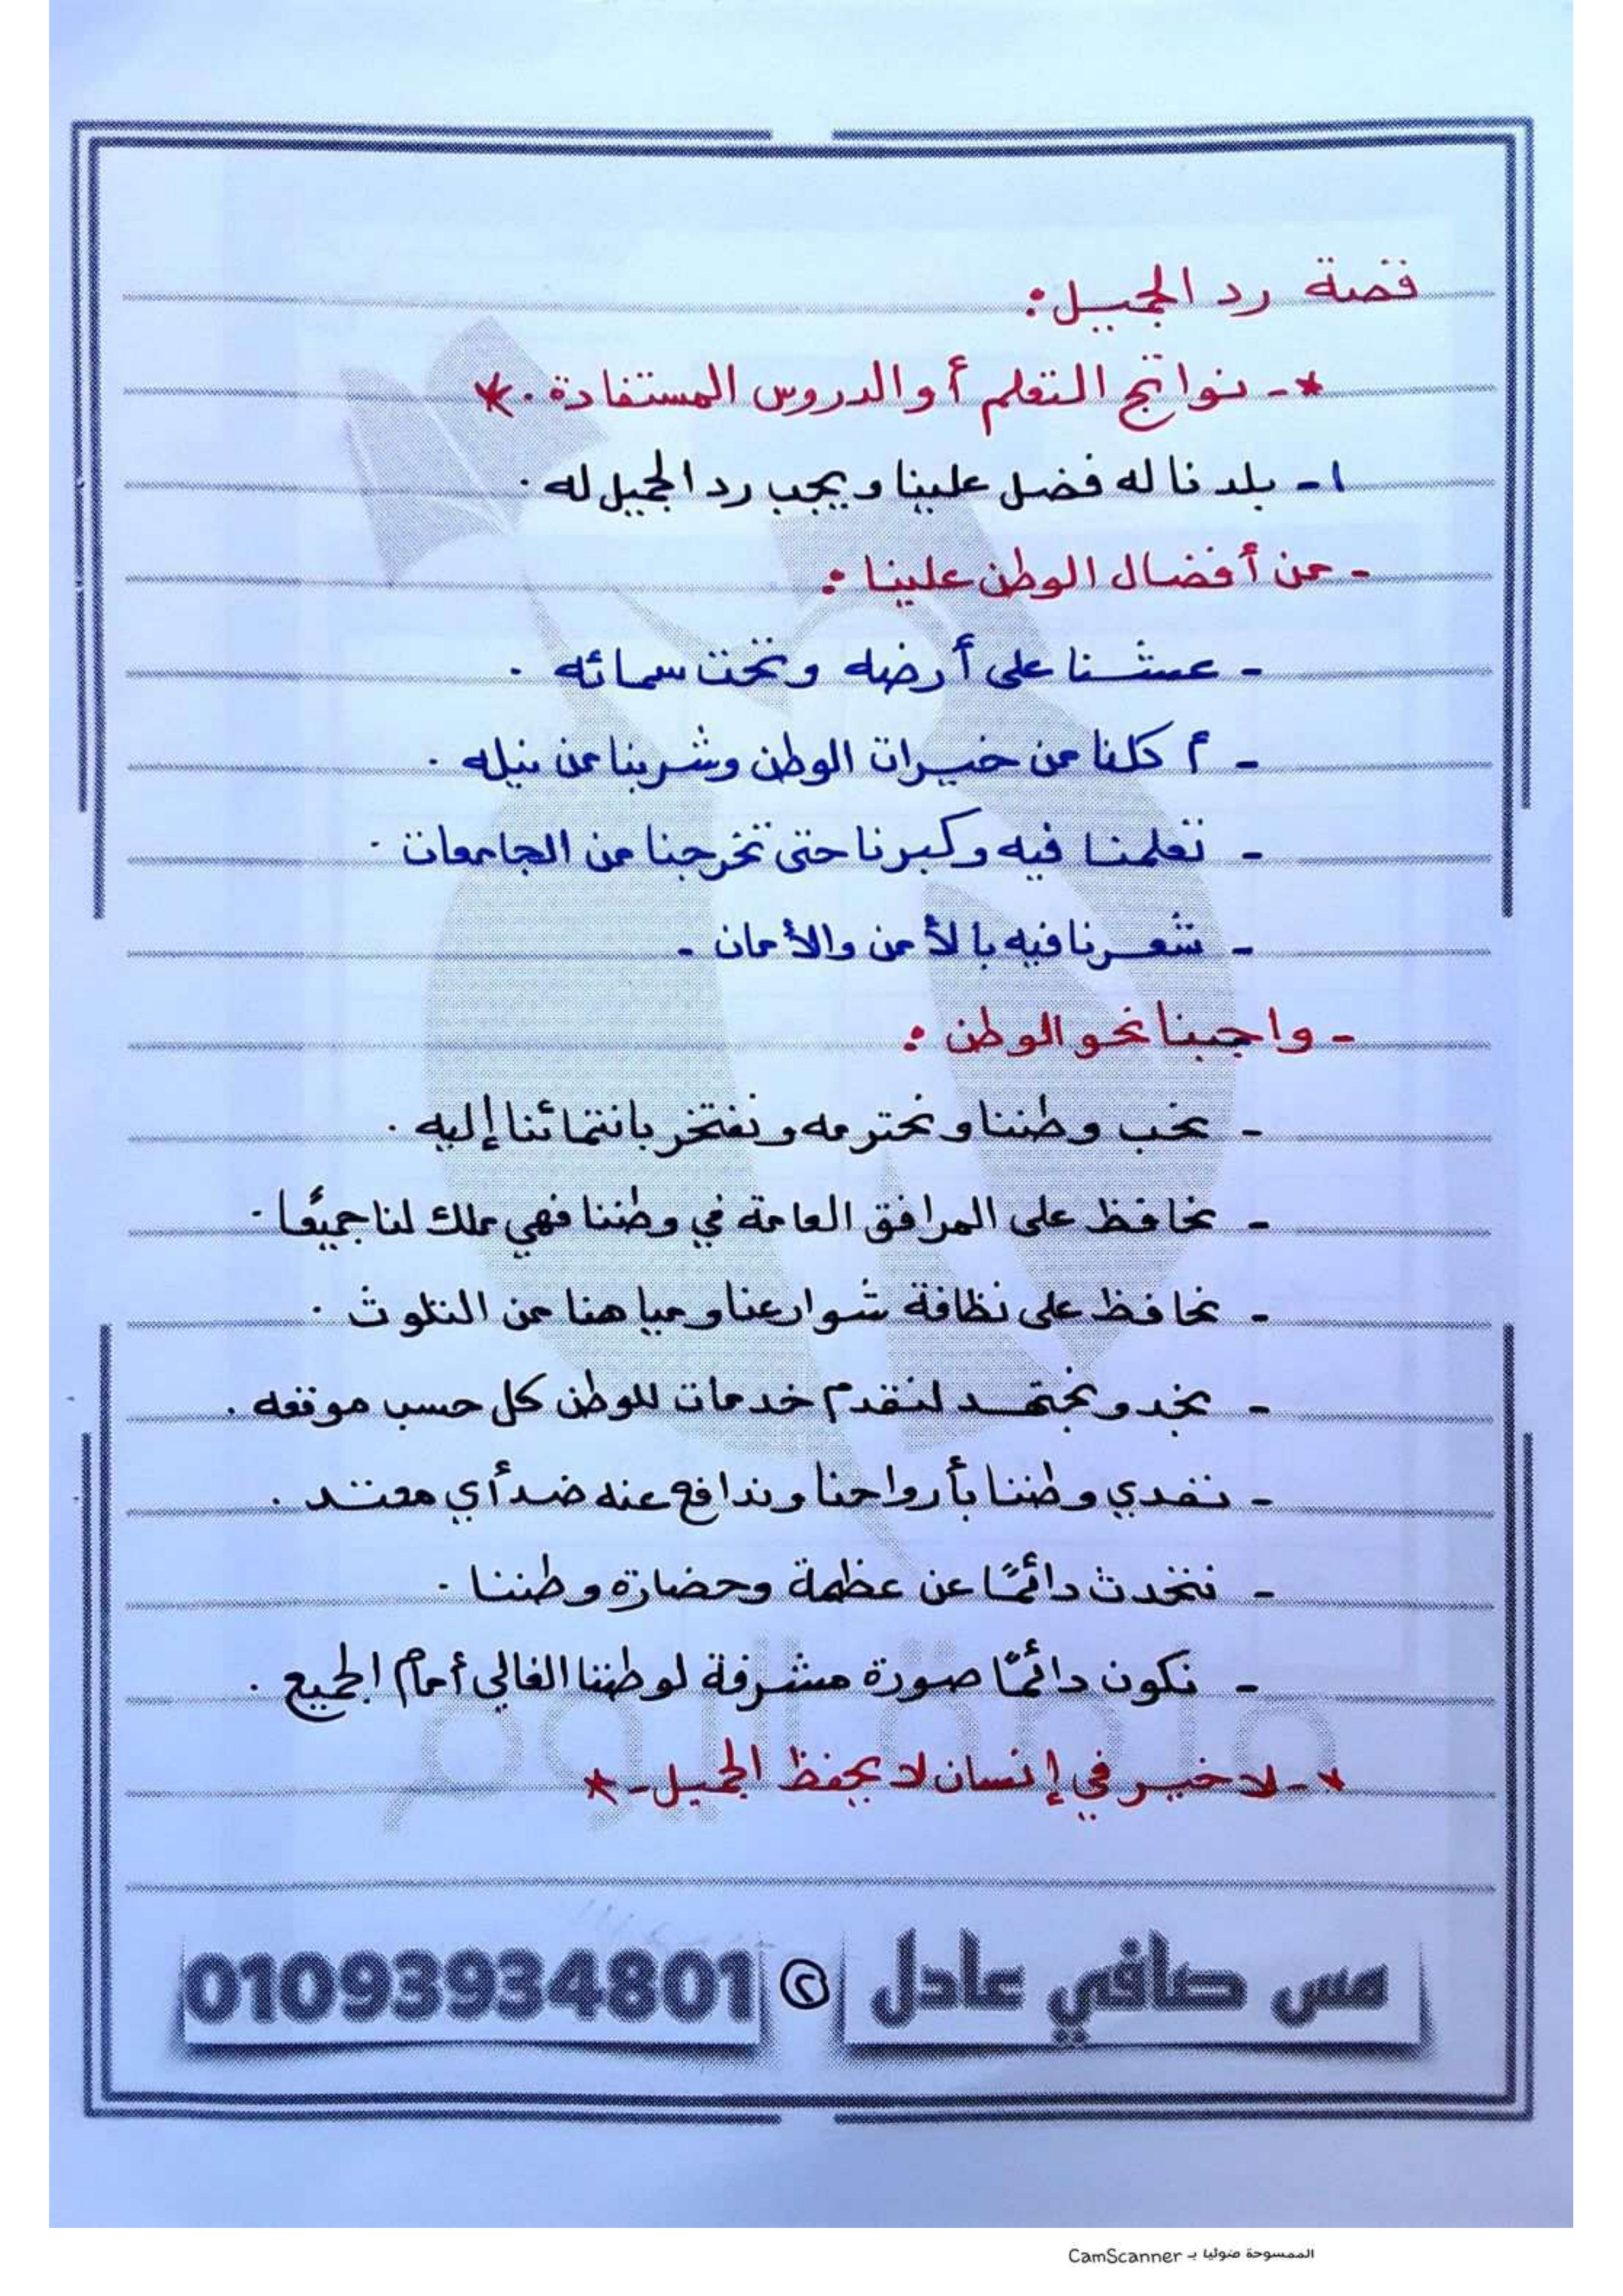 قصة رد الجميل:
*- نواتج التعلم أو الدروس المستفادة. *
١- بلدنا له فضل علينا ويجب رد الجميل له.
- من أفضال الوطن علينا:
- عشنا على أرضه وتحت سمائه.
- أكلنا من خيرات الوطن وشربنا من نيله.
- تعلمنا فيه وكبرنا حتى تخرجنا من الجامعات.
- شعرنا فيه بالأمن والأمان.
- واجبنا نحو الوطن:
- نحب وطننا ونحترمه ونفتخر بانتمائنا إليه.
- نحافظ على المرافق العامة في وطننا فهي ملك لنا جميعًا.
- نحافظ على نظافة شوارعنا ومياهنا من التلوث.
- نجد ونجتهد لنقدم خدمات للوطن كل حسب موقعه.
- نفدي وطننا بأرواحنا وندافع عنه ضد أي معتد.
- نتحدث دائمًا عن عظمة وحضارة وطننا.
- نكون دائمًا صورة مشرفة لوطننا الغالي أمام الجميع.
*- لا خير في إنسان لا يحفظ الجميل -*
مس صافي عادل ٢ 01093934801
الممسوحة ضوئيا بـ CamScanner